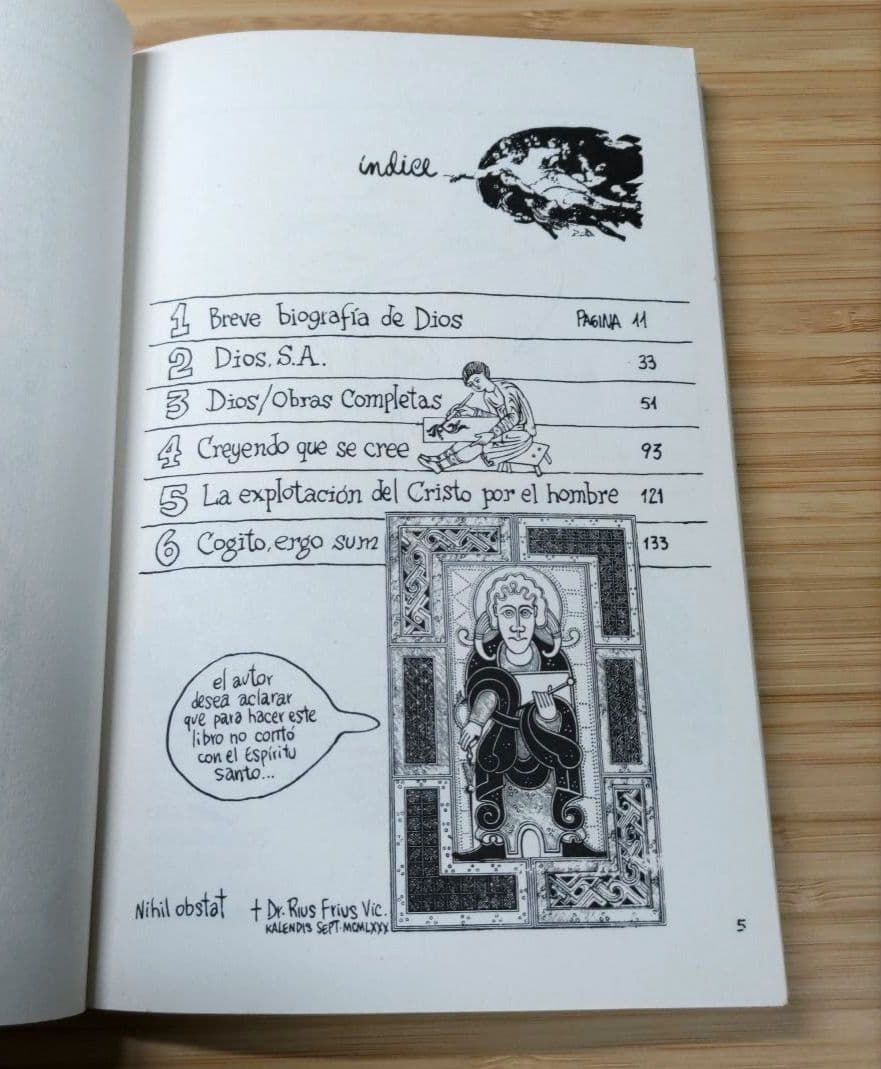 índice
1 Breve biografía de Dios PAGINA 11
2 Dios, S.A. 33
3 Dios/Obras Completas 51
4 Creyendo que se cree 93
5 La explotación del Cristo por el hombre 121
6 Cogito, ergo sum 133
el autor
desea aclarar
que para hacer este
libro no contó
con el Espíritu
santo...
Nihil obstat † Dr. Rius Frius Vic.
KALENDIS SEPT. MCMLXXX
5